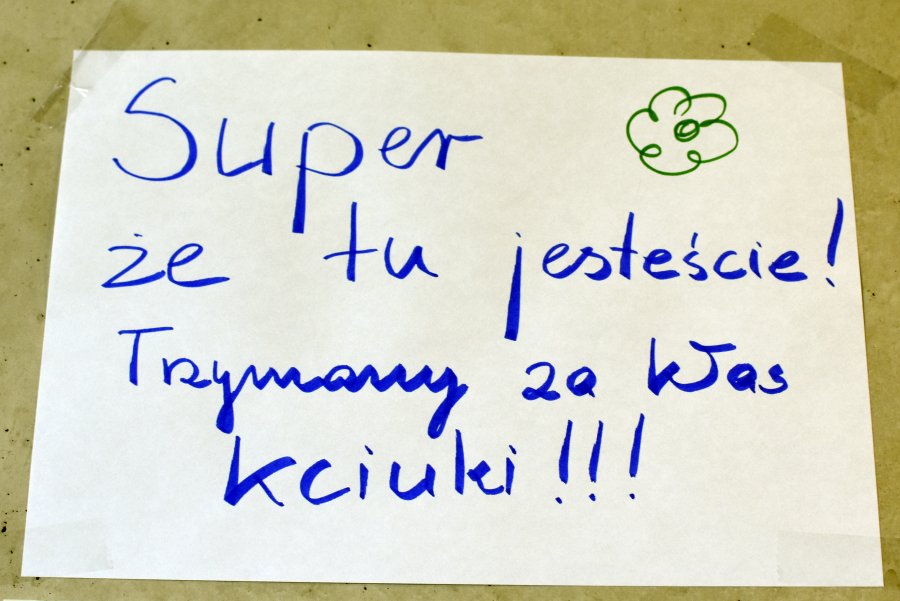 Super
że tu jesteście!
Trzymamy za Was
kciuki!!!